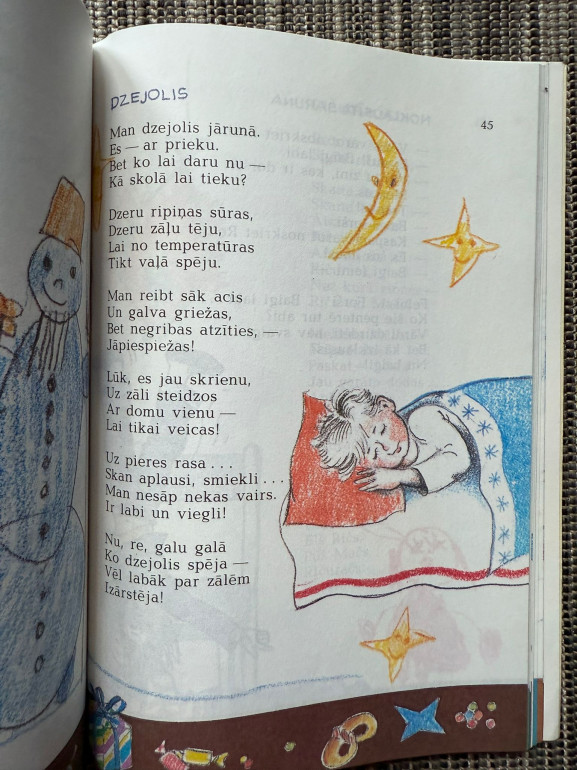 DZEJOLIS
45
Man dzejolis jārunā.
Es — ar prieku.
Bet ko lai daru nu —
Kā skolā lai tieku?
Dzeru ripiņas sūras,
Dzeru zāļu tēju,
Lai no temperatūras
Tikt vaļā spēju.
Man reibt sāk acis
Un galva griežas,
Bet negribas atzīties, —
Jāpiespiežas!
Lūk, es jau skrienu,
Uz zāli steidzos
Ar domu vienu —
Lai tikai veicas!
Uz pieres rasa . . .
Skan aplausi, smiekli . . .
Man nesāp nekas vairs.
Ir labi un viegli!
Nu, re, galu galā
Ko dzejolis spēja —
Vēl labāk par zālēm
Izārstēja!